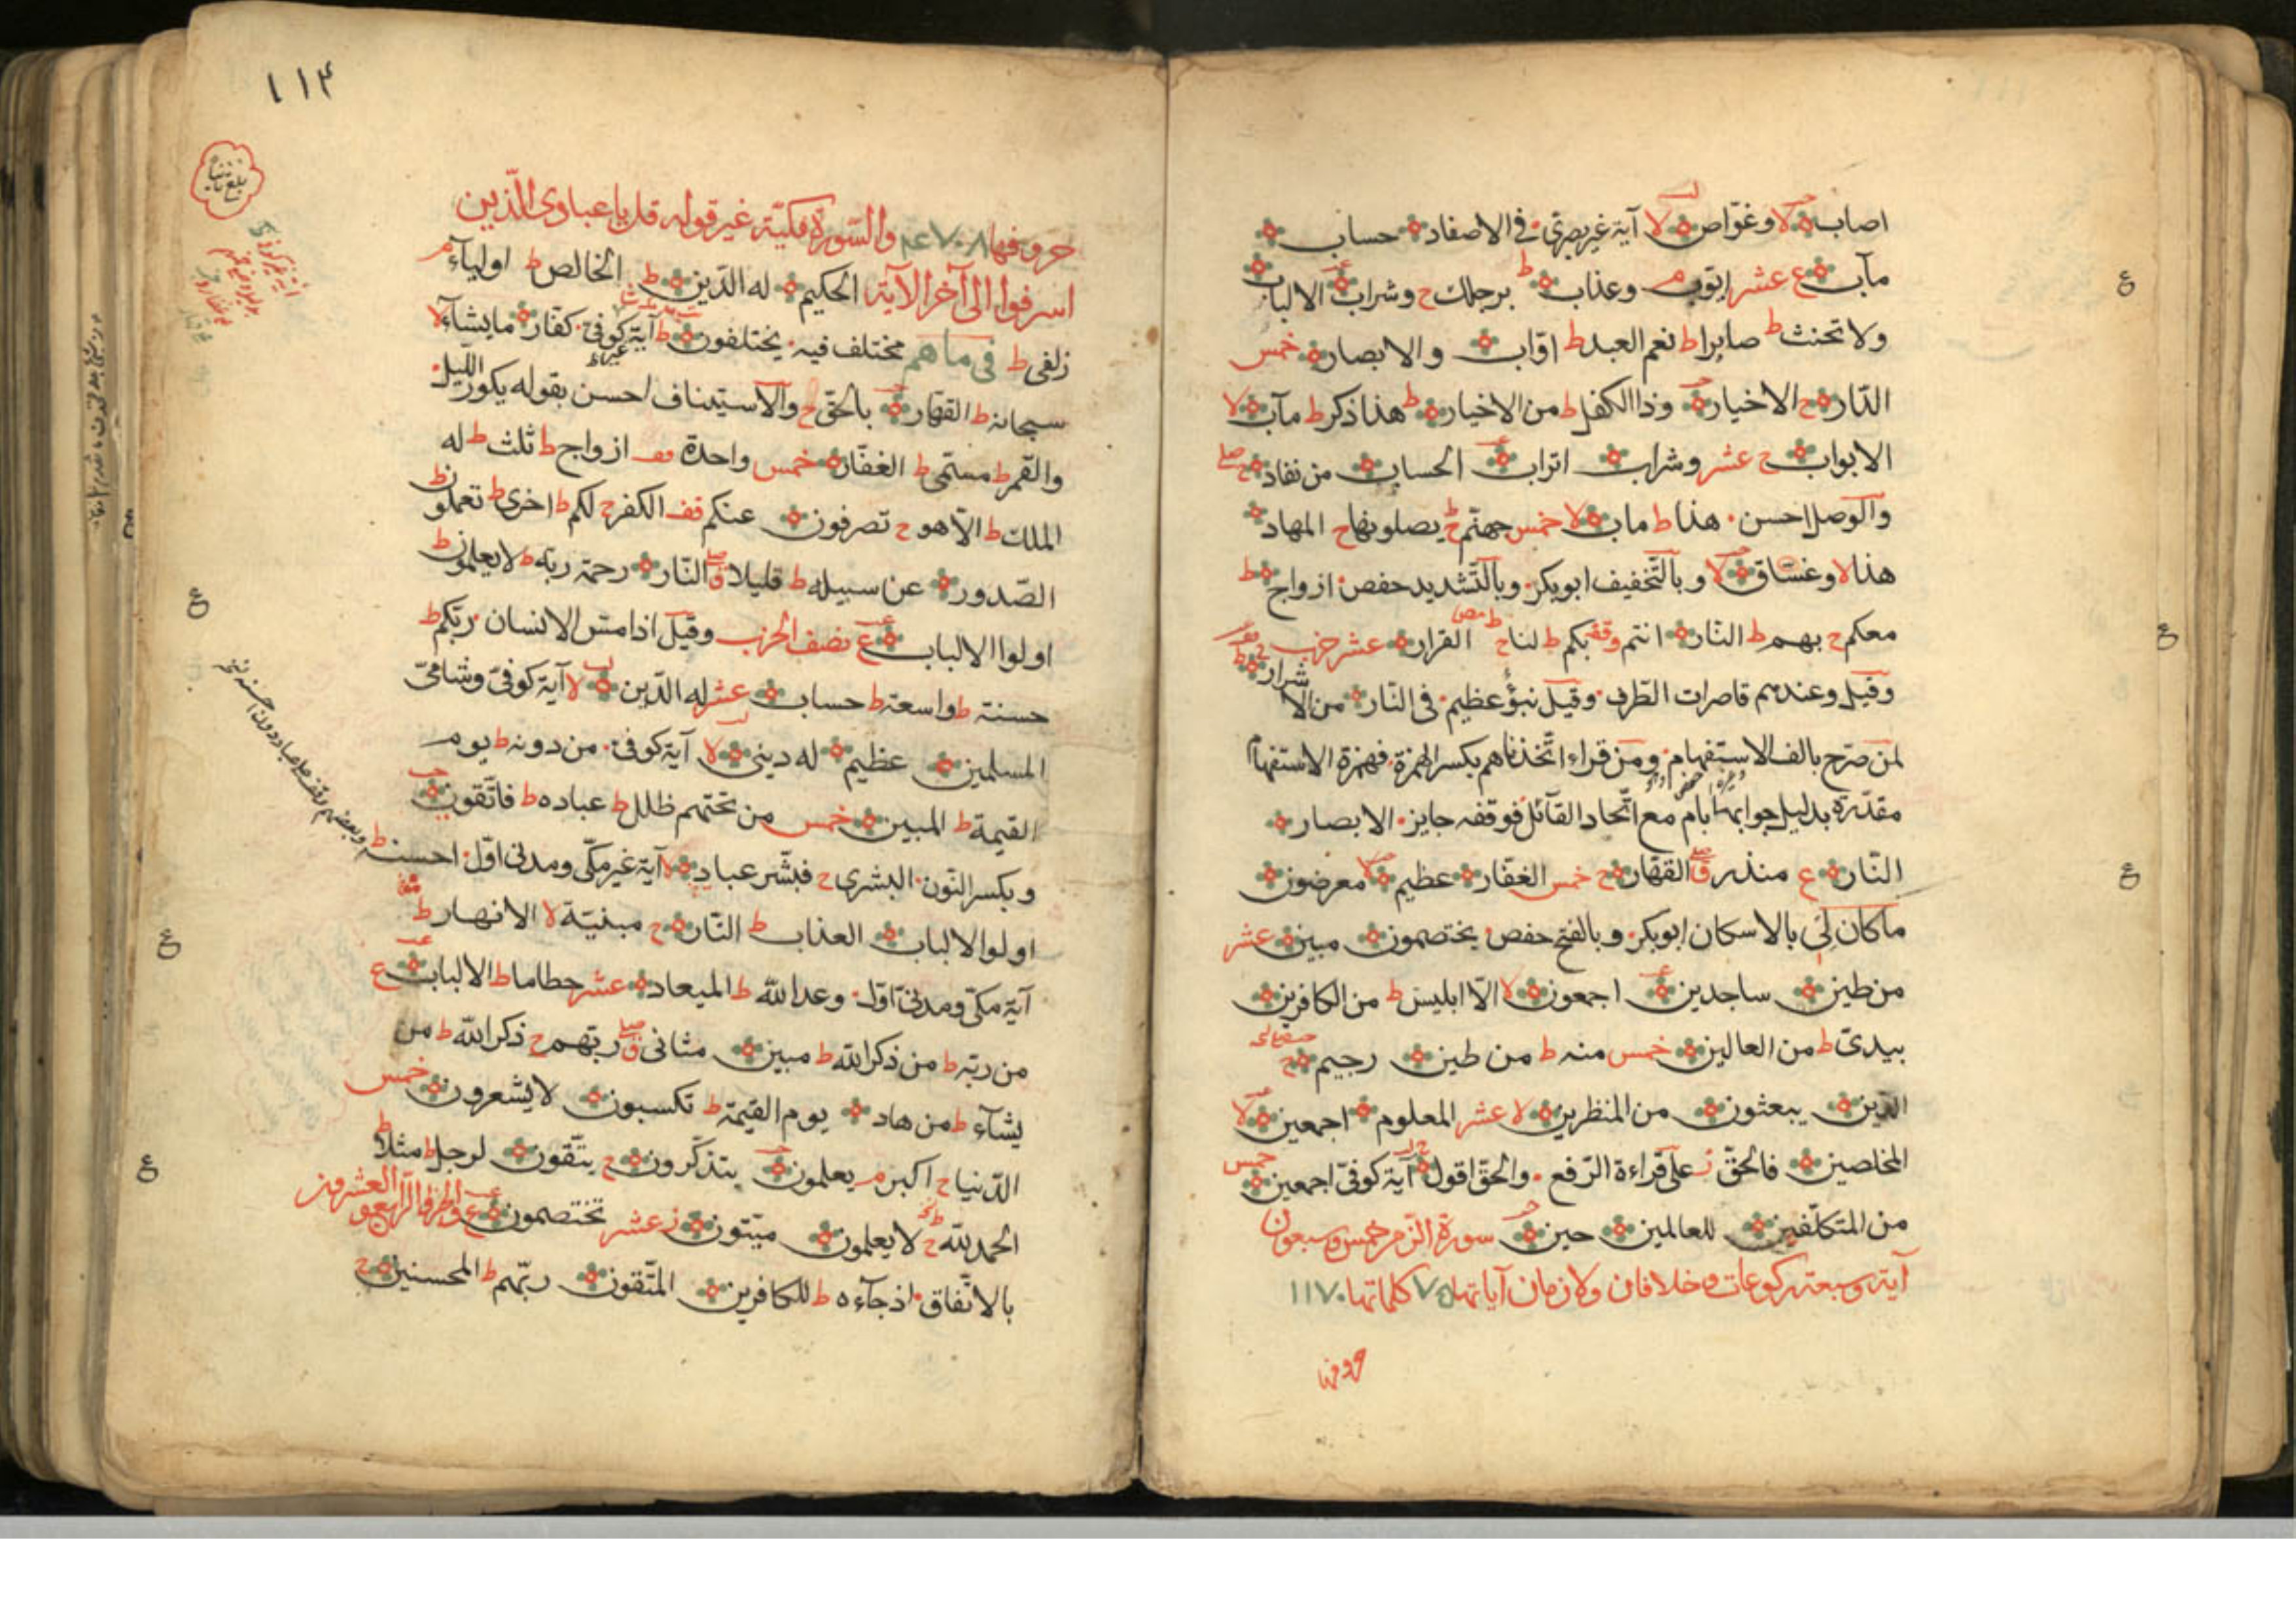 اصاب لا وغوّاص لا آية غير بصرى في الاصفاد حساب
مآب ع عشر ايّوب م وعذاب ط برجلك ح وشراب الالباب
ولا تحنث ط صابرا ط نعم العبد ط اوّاب والابصار خمس
الدّار ح الاخيار وذا الكفل ط من الاخيار ط هذا ذكر ط مآب لا
الابواب ح عشر وشراب اتراب الحساب من نفاد ح صلى
والوصل احسن هذا ط مآب لا خمس جهنّم ح يصلونها ح المهاد
هذا لا وغسّاق لا وبالتّخفيف ابوبكر وبالتّشديد حفص ازواج ط
معكم ح بهم ط النّار انتم وقفة بكم ط لنا ح القرار عشر حزب
وقيل وعندهم قاصرات الطّرف وقيل نبؤ عظيم في النّار من الاشرار ط
لمن صرّح بالف الاستفهام ومن قراء اتّخذناهم بكسر الهمزة فهمزة الاستفهام
مقدّرة بدليل جوابها بام مع اتّحاد القآئل فوقفه جايز الابصار
النّار ع منذر ق صلى القهّار ح خمس الغفّار عظيم لا معرضون
ماكان لى بالاسكان ابوبكر وبالفتح حفص يختصمون مبين عشر
من طين ساجدين اجمعون لا الّا ابليس ط من الكافرين
بيدىّ ط من العالين خمس منه ط من طين رجيم ح
الدّين يبعثون من المنظرين لا عشر المعلوم اجمعين لا
المخلصين فالحقّ ز على قراءة الرّفع والحقّ اقول آية كوفىّ اجمعين خمس
من المتكلّفين للعالمين حين سورة الزّمر خمس وسبعون
آية وسبعة ركوعات خلافان ولازمان آياتها ٧٥ كلماتها ١١٧٠
حروفها
١١٤
بلغ
حروفها ٤٧٠٨ والسّورة مكيّة غير قوله قل يا عبادى الّذين
اسرفوا الى آخر الآية الحكيم له الدّين ط الخالص ط اوليآء م
زلفى ط فى ما هم مختلف فيه يختلفون ط آية غير كوفىّ كفّار مايشآء لا
سبحانه ط القهّار بالحقّ ح والاستيناف احسن بقوله يكوّر اللّيل
والقمر ط مسمّى ط الغفّار خمس واحدة قف ازواج ط ثلث ط له
الملك ط الّا هو ح تصرفون عنكم قف الكفر ح لكم ط اخرى ط تعملون ط
الصّدور عن سبيله ط قليلا ق صلى النّار رحمة ربّه ط لا يعلمون ط
اولوا الالباب ع نصف الحزب وقيل اذا مسّ الانسان ربّكم ط
حسنة ط واسعة ط حساب عشر له الدّين لا آية كوفىّ وشامىّ
المسلمين عظيم له دينى لا آية كوفى من دونه ط يوم
القيمة ط المبين خمس من تحتهم ظلل ط عباده ط فاتّقون
وبكسر النّون البشرى ح فبشّر عباد لا آية غير مكّى ومدنى اوّل احسنه ط
اولوا الالباب العذاب ط النّار ح مبنيّة لا الانهار ط
آية مكّى ومدنىّ اوّل وعد اللّه ط الميعاد عشر حطاما ط الالباب ع
من ربّه ط من ذكر اللّه ط مبين مثانى ق صلى ربّهم ح ذكر اللّه ط من
يشآء ط من هاد يوم القيمة ط تكسبون لا يشعرون خمس
الدّنيا ح اكبر م يعلمون يتذكّرون ح يتّقون لرجل ط مثلا ط
الحمد للّه ح لا يعلمون ميّتون ز عشر تختصمون ع والجزء الرّابع والعشرون
بالاتّفاق اذ جآءه ط للكافرين المتّقون ربّهم ط المحسنين ح
ع
ع
ع
ع
ع
ع